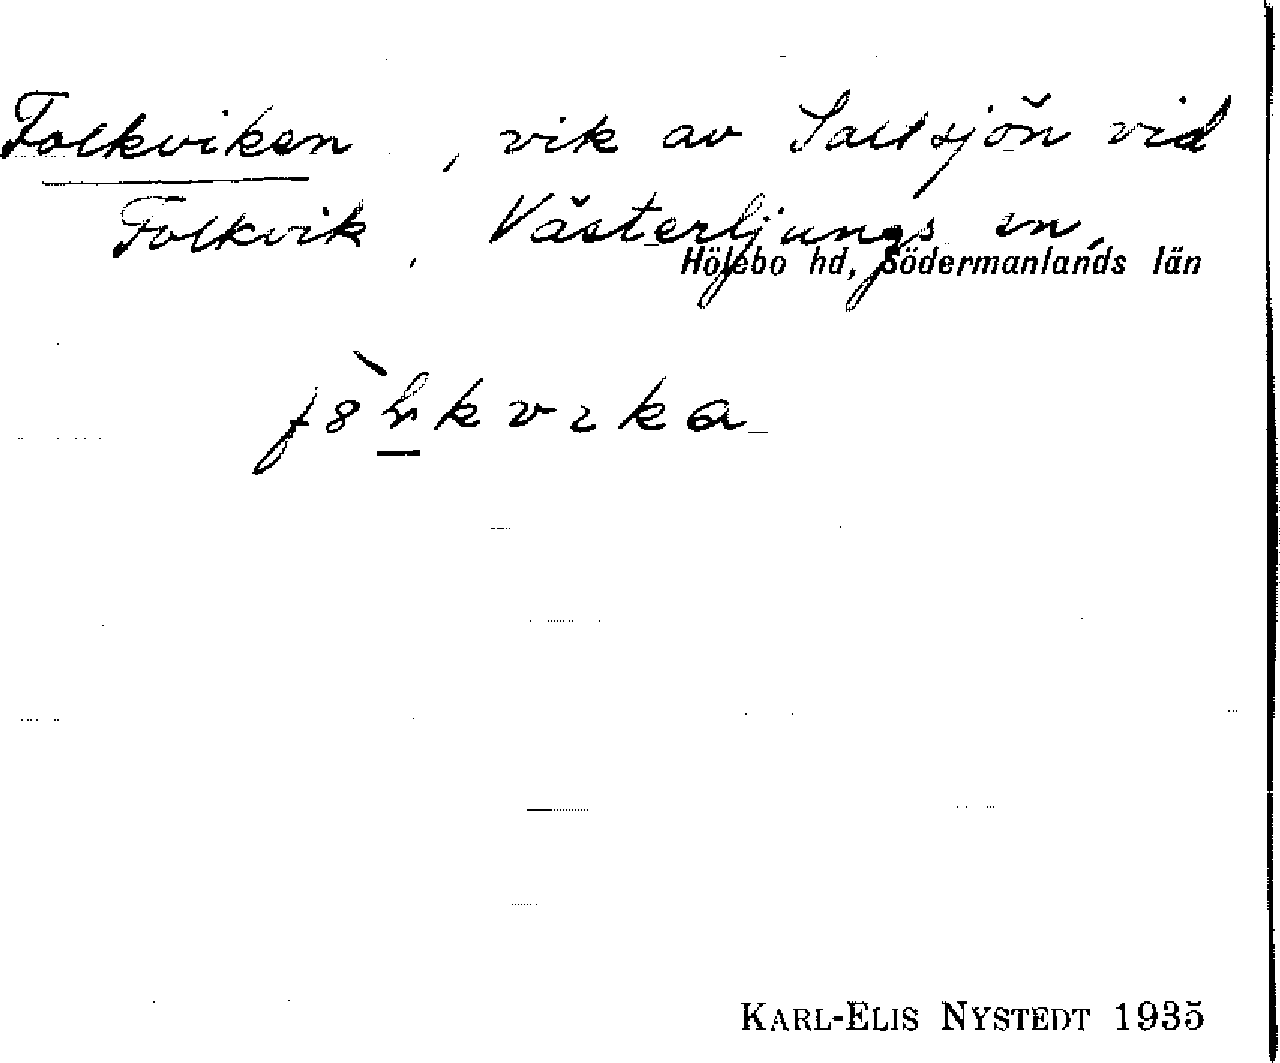 Folkviken, vik av Saltsjön vid
Folkvik, Västerljungs sn,
Hölebo hd, Södermanlands län
KARL-ELIS NYSTEDT 1935